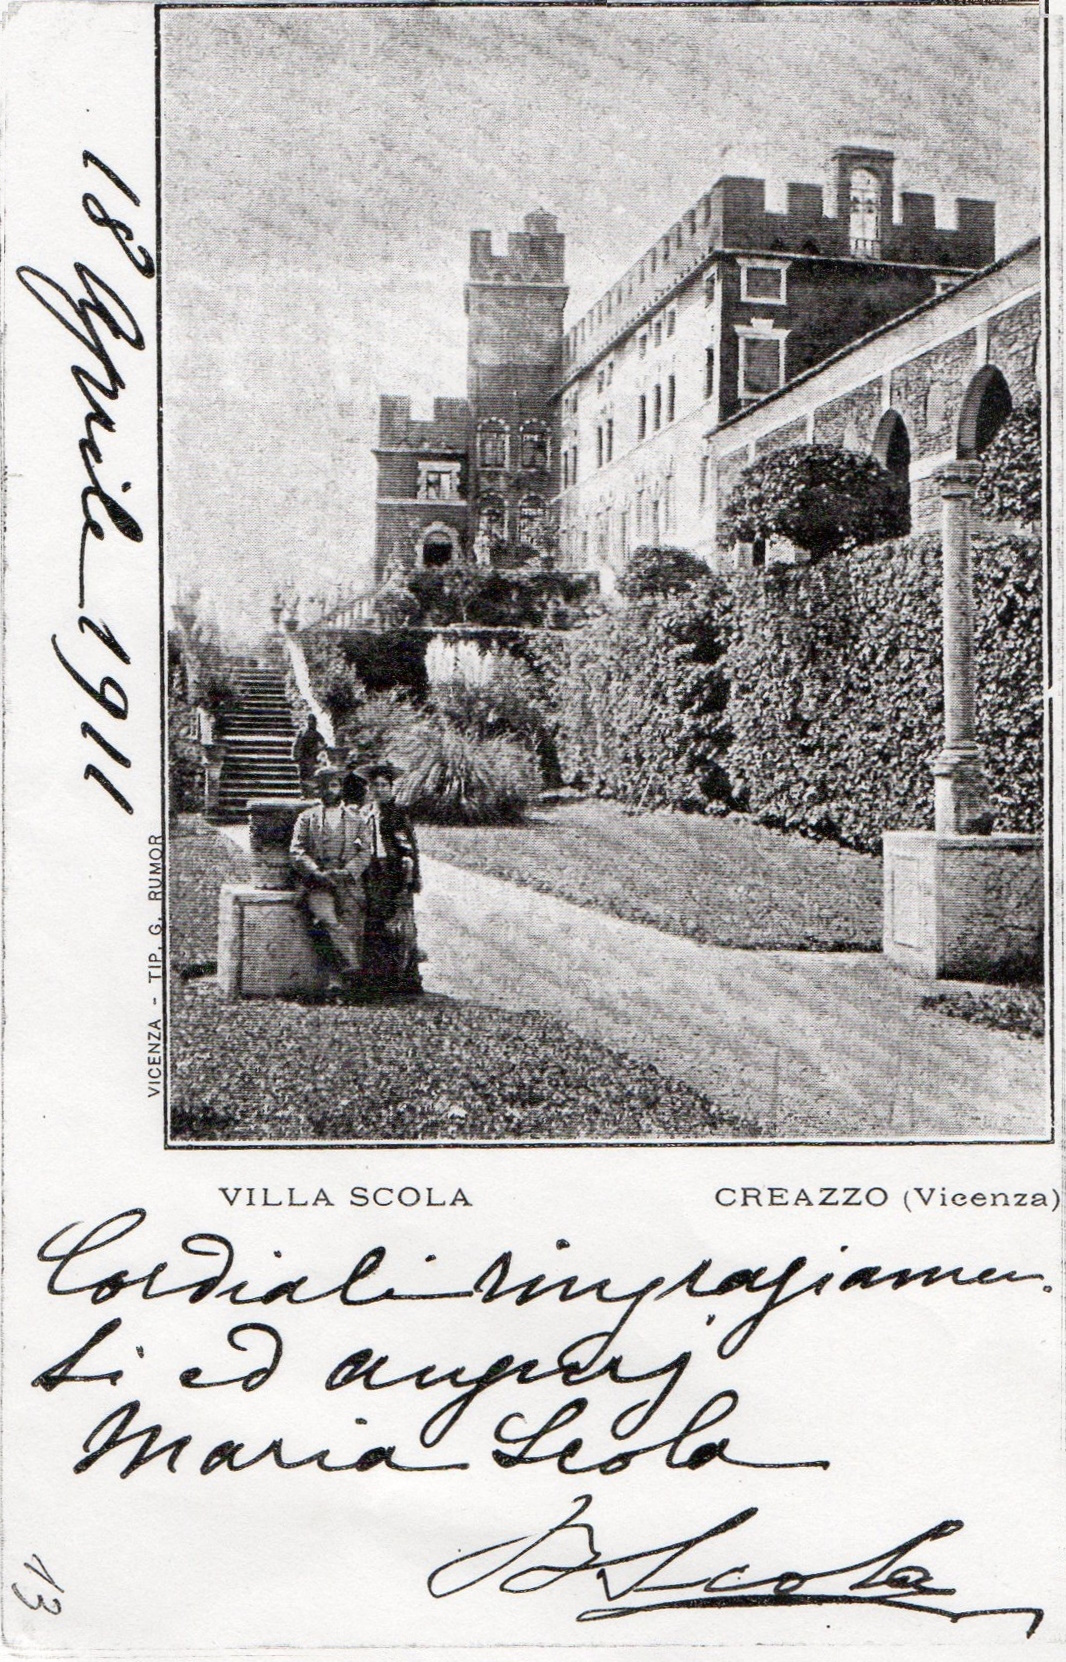 18 Aprile 1911
VICENZA - TIP. G. RUMOR
VILLA SCOLA
CREAZZO (Vicenza)
Cordiali ringraziamen.
ti ed augurj
Maria Scola
B Scola
13